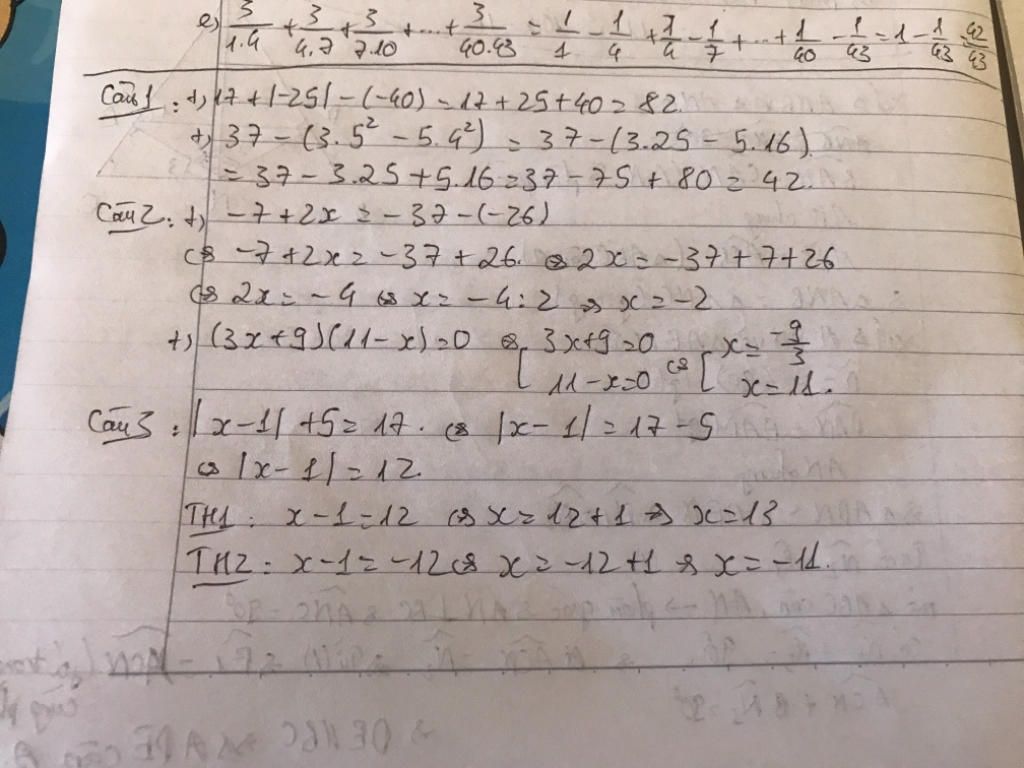 e) 3/1.4 + 3/4.7 + 3/7.10 + ... + 3/40.43 = 1/1 - 1/4 + 1/4 - 1/7 + ... + 1/40 - 1/43 = 1 - 1/43 = 42/43
Câu 1 : +) 17 + |-25| - (-40) = 17 + 25 + 40 = 82
+) 37 - (3.5² - 5.4²) = 37 - (3.25 - 5.16).
= 37 - 3.25 + 5.16 = 37 - 75 + 80 = 42.
Câu 2 : +) -7 + 2x = -37 - (-26)
⇔ -7 + 2x = -37 + 26. ⇔ 2x = -37 + 7 + 26
⇔ 2x = -4 ⇔ x = -4 : 2 ⇒ x = -2
+) (3x + 9)(11 - x) = 0 ⇔ [ 3x + 9 = 0 ⇔ [ x = -9/3
11 - x = 0 x = 11.
Câu 3 : |x - 1| + 5 = 17. ⇔ |x - 1| = 17 - 5
⇔ |x - 1| = 12.
TH1 : x - 1 = 12 ⇔ x = 12 + 1 ⇒ x = 13
TH2 : x - 1 = -12 ⇔ x = -12 + 1 ⇒ x = -11.